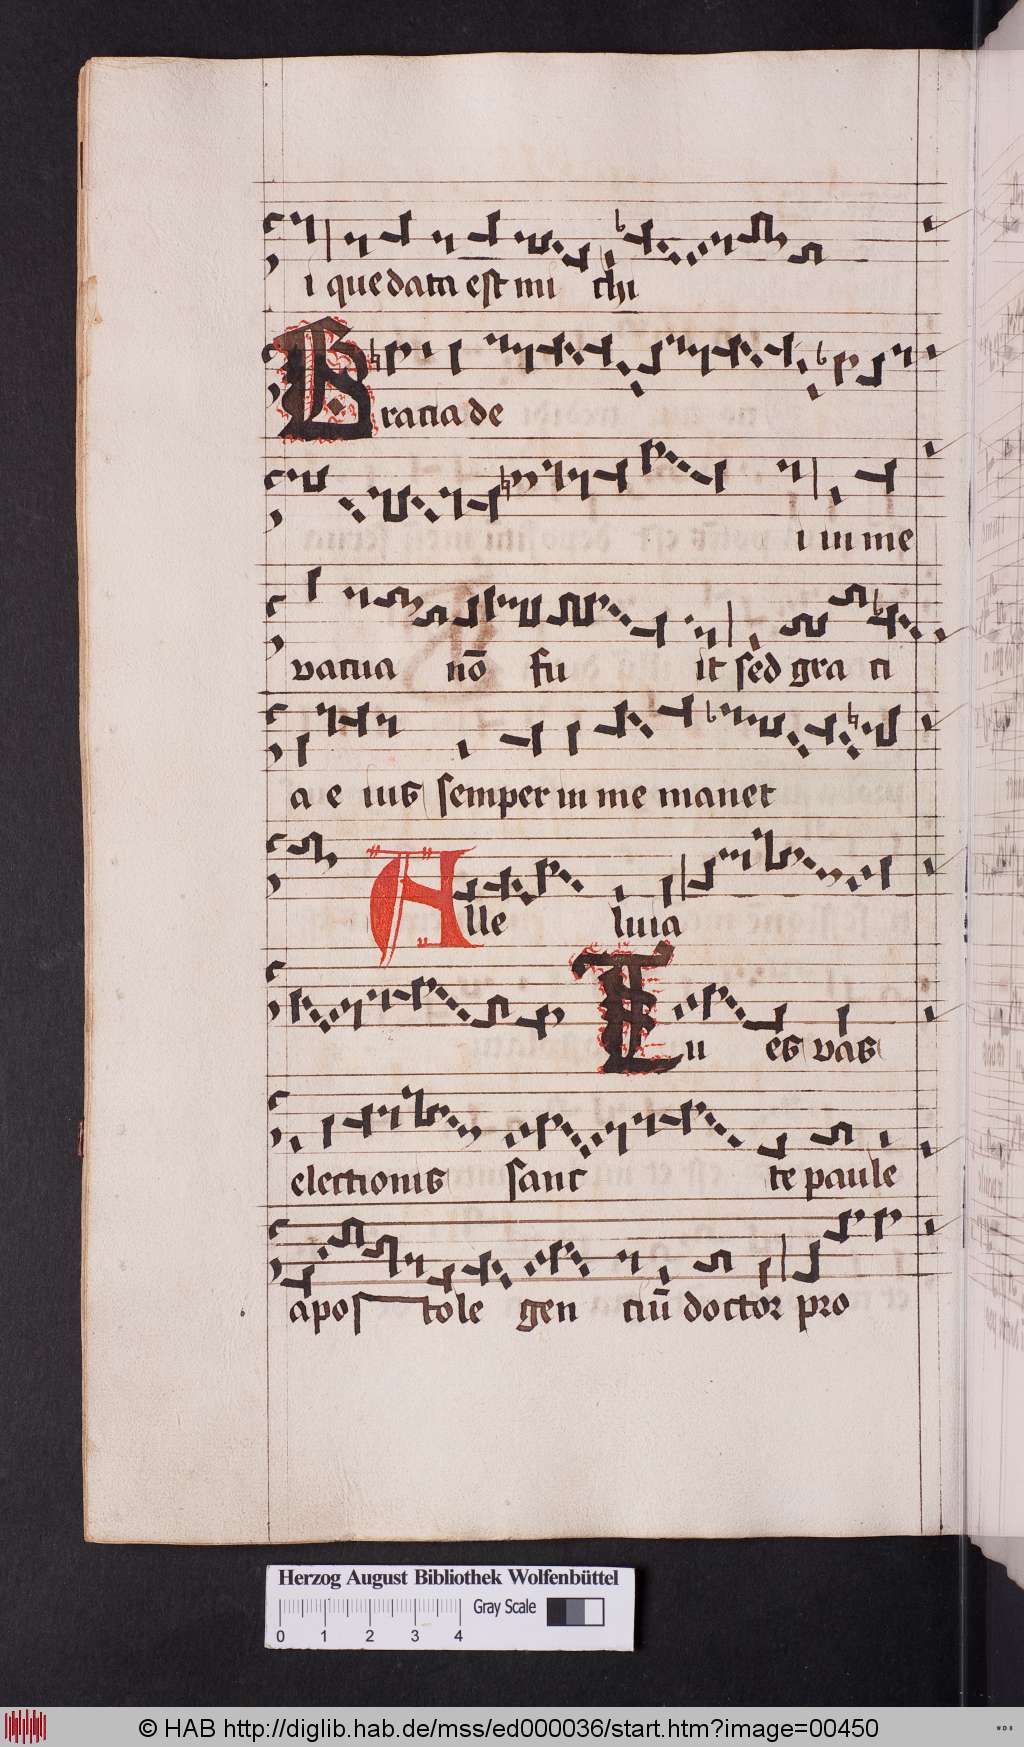 i que data est mi chi
Gracia de
i in me
vacua nō fu it sed gra ci
a e ius semper in me manet
Alle luia
Tu es vas
electionis sanc te paule
apos tole gen ciū doctor pro
Herzog August Bibliothek Wolfenbüttel
Gray Scale
0 1 2 3 4
© HAB http://diglib.hab.de/mss/ed000036/start.htm?image=00450